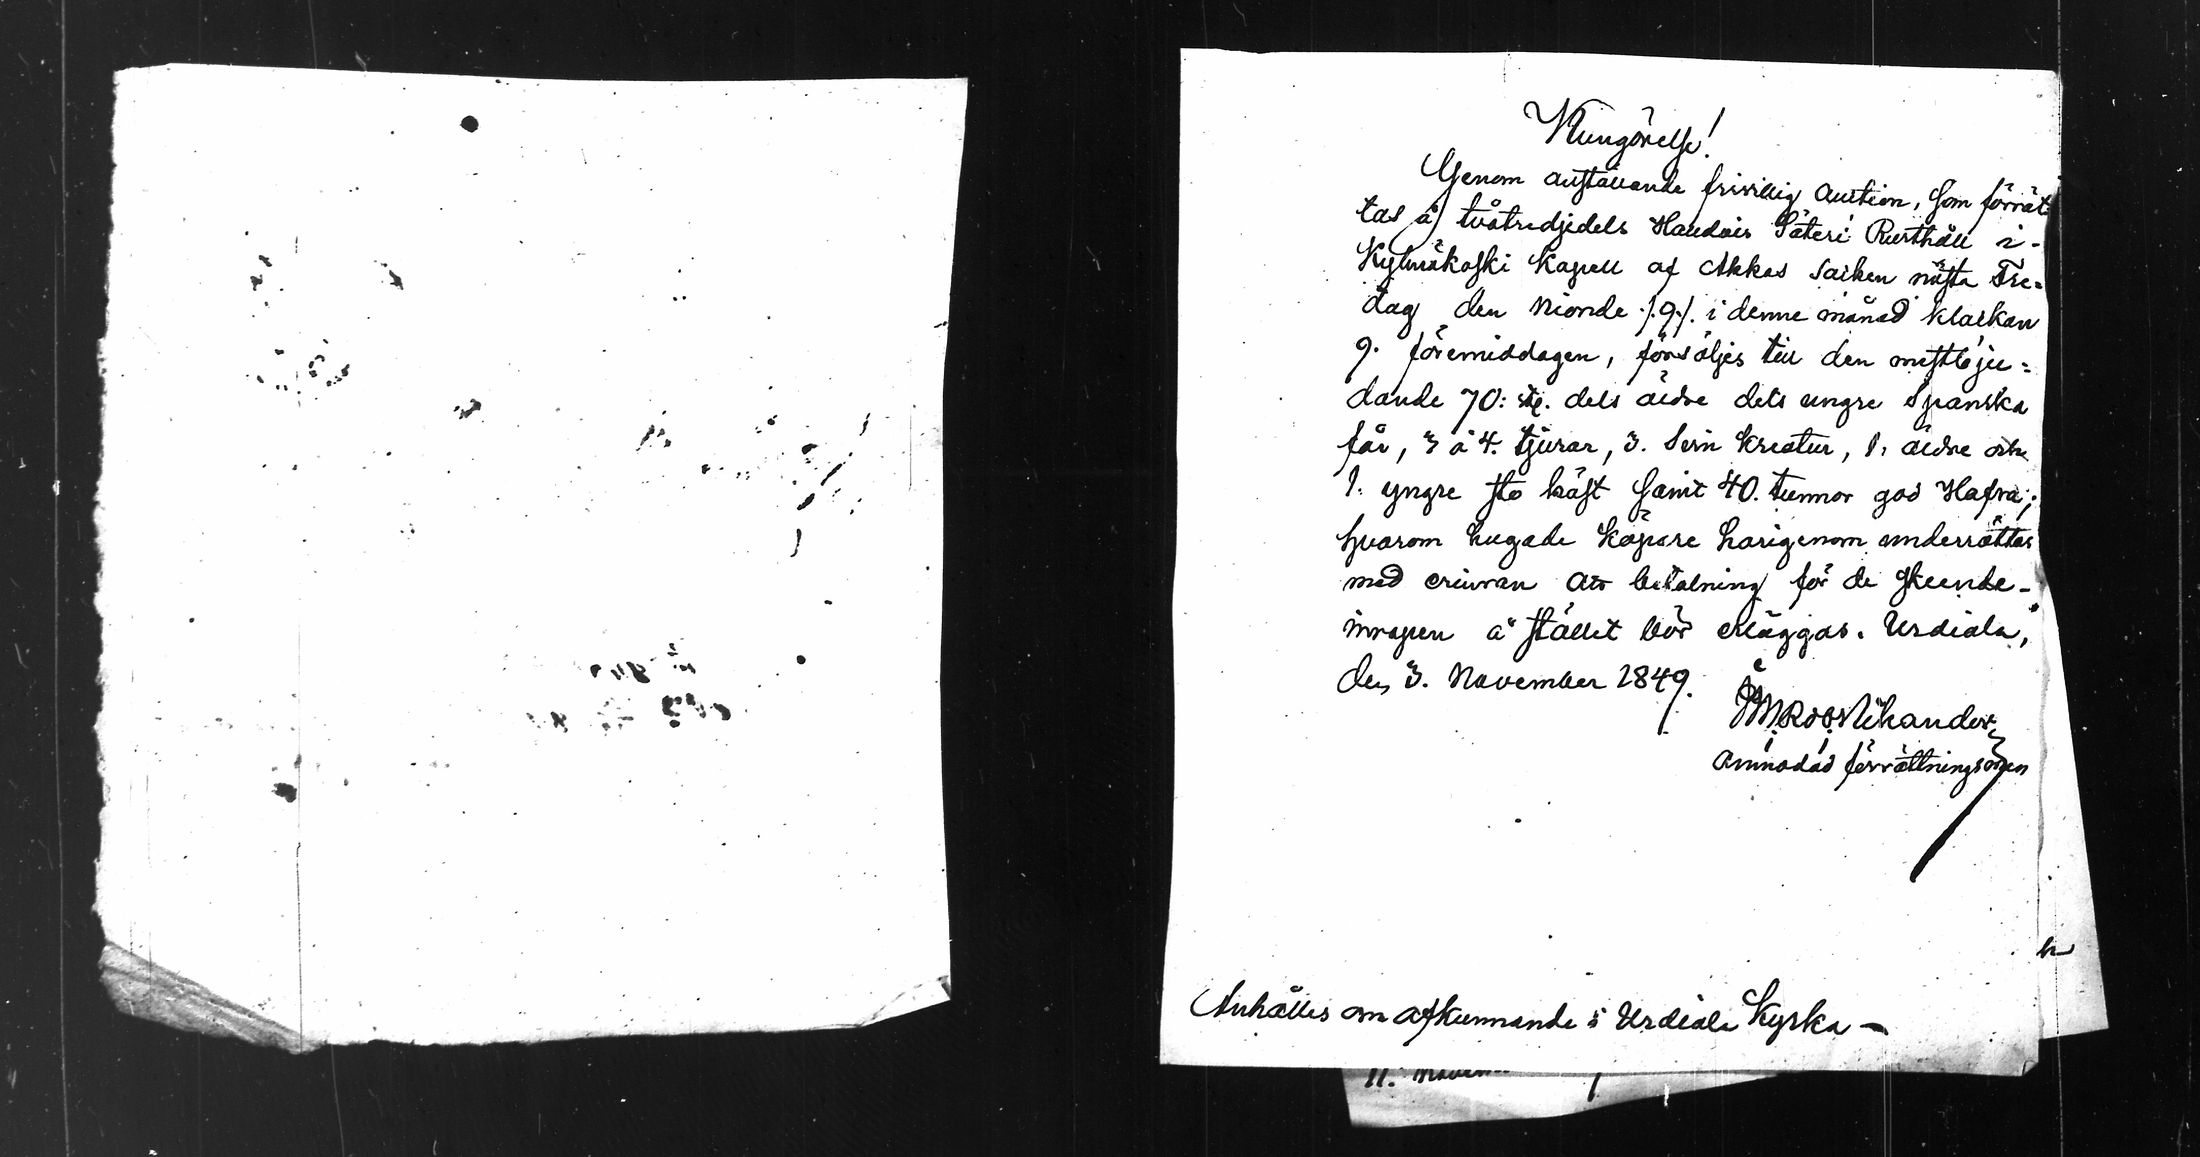 Kungörelse!
Genom anställande frivillig Auction, som förrät
tas å tvåtredjedels Haudois Säteri Rusthåll i-
Kylmäkoski Kapell af Akkas Socken nästa Fre=
dag den Nionde /:9:/ i denne månad klockan
9. föremiddagen, försäljes till den mestbju=
dande 70: st. dels äldre dels yngre Spanska
får, 3 à 4. tjurar, 3. Svin kreatur, 1: äldre och
1. yngre sto häst samt 40. tunnor god Hafra;
hvarom hugade köpare härigenom underrättas
med erinran att betalning för de skeende-
inropen å stället bör erläggas. Urdiala,
den 3. November 1849.
Nikander
anmodad förrättningsman
Anhålles om afkunnande i Urdiala Kyrka –
11. Novem